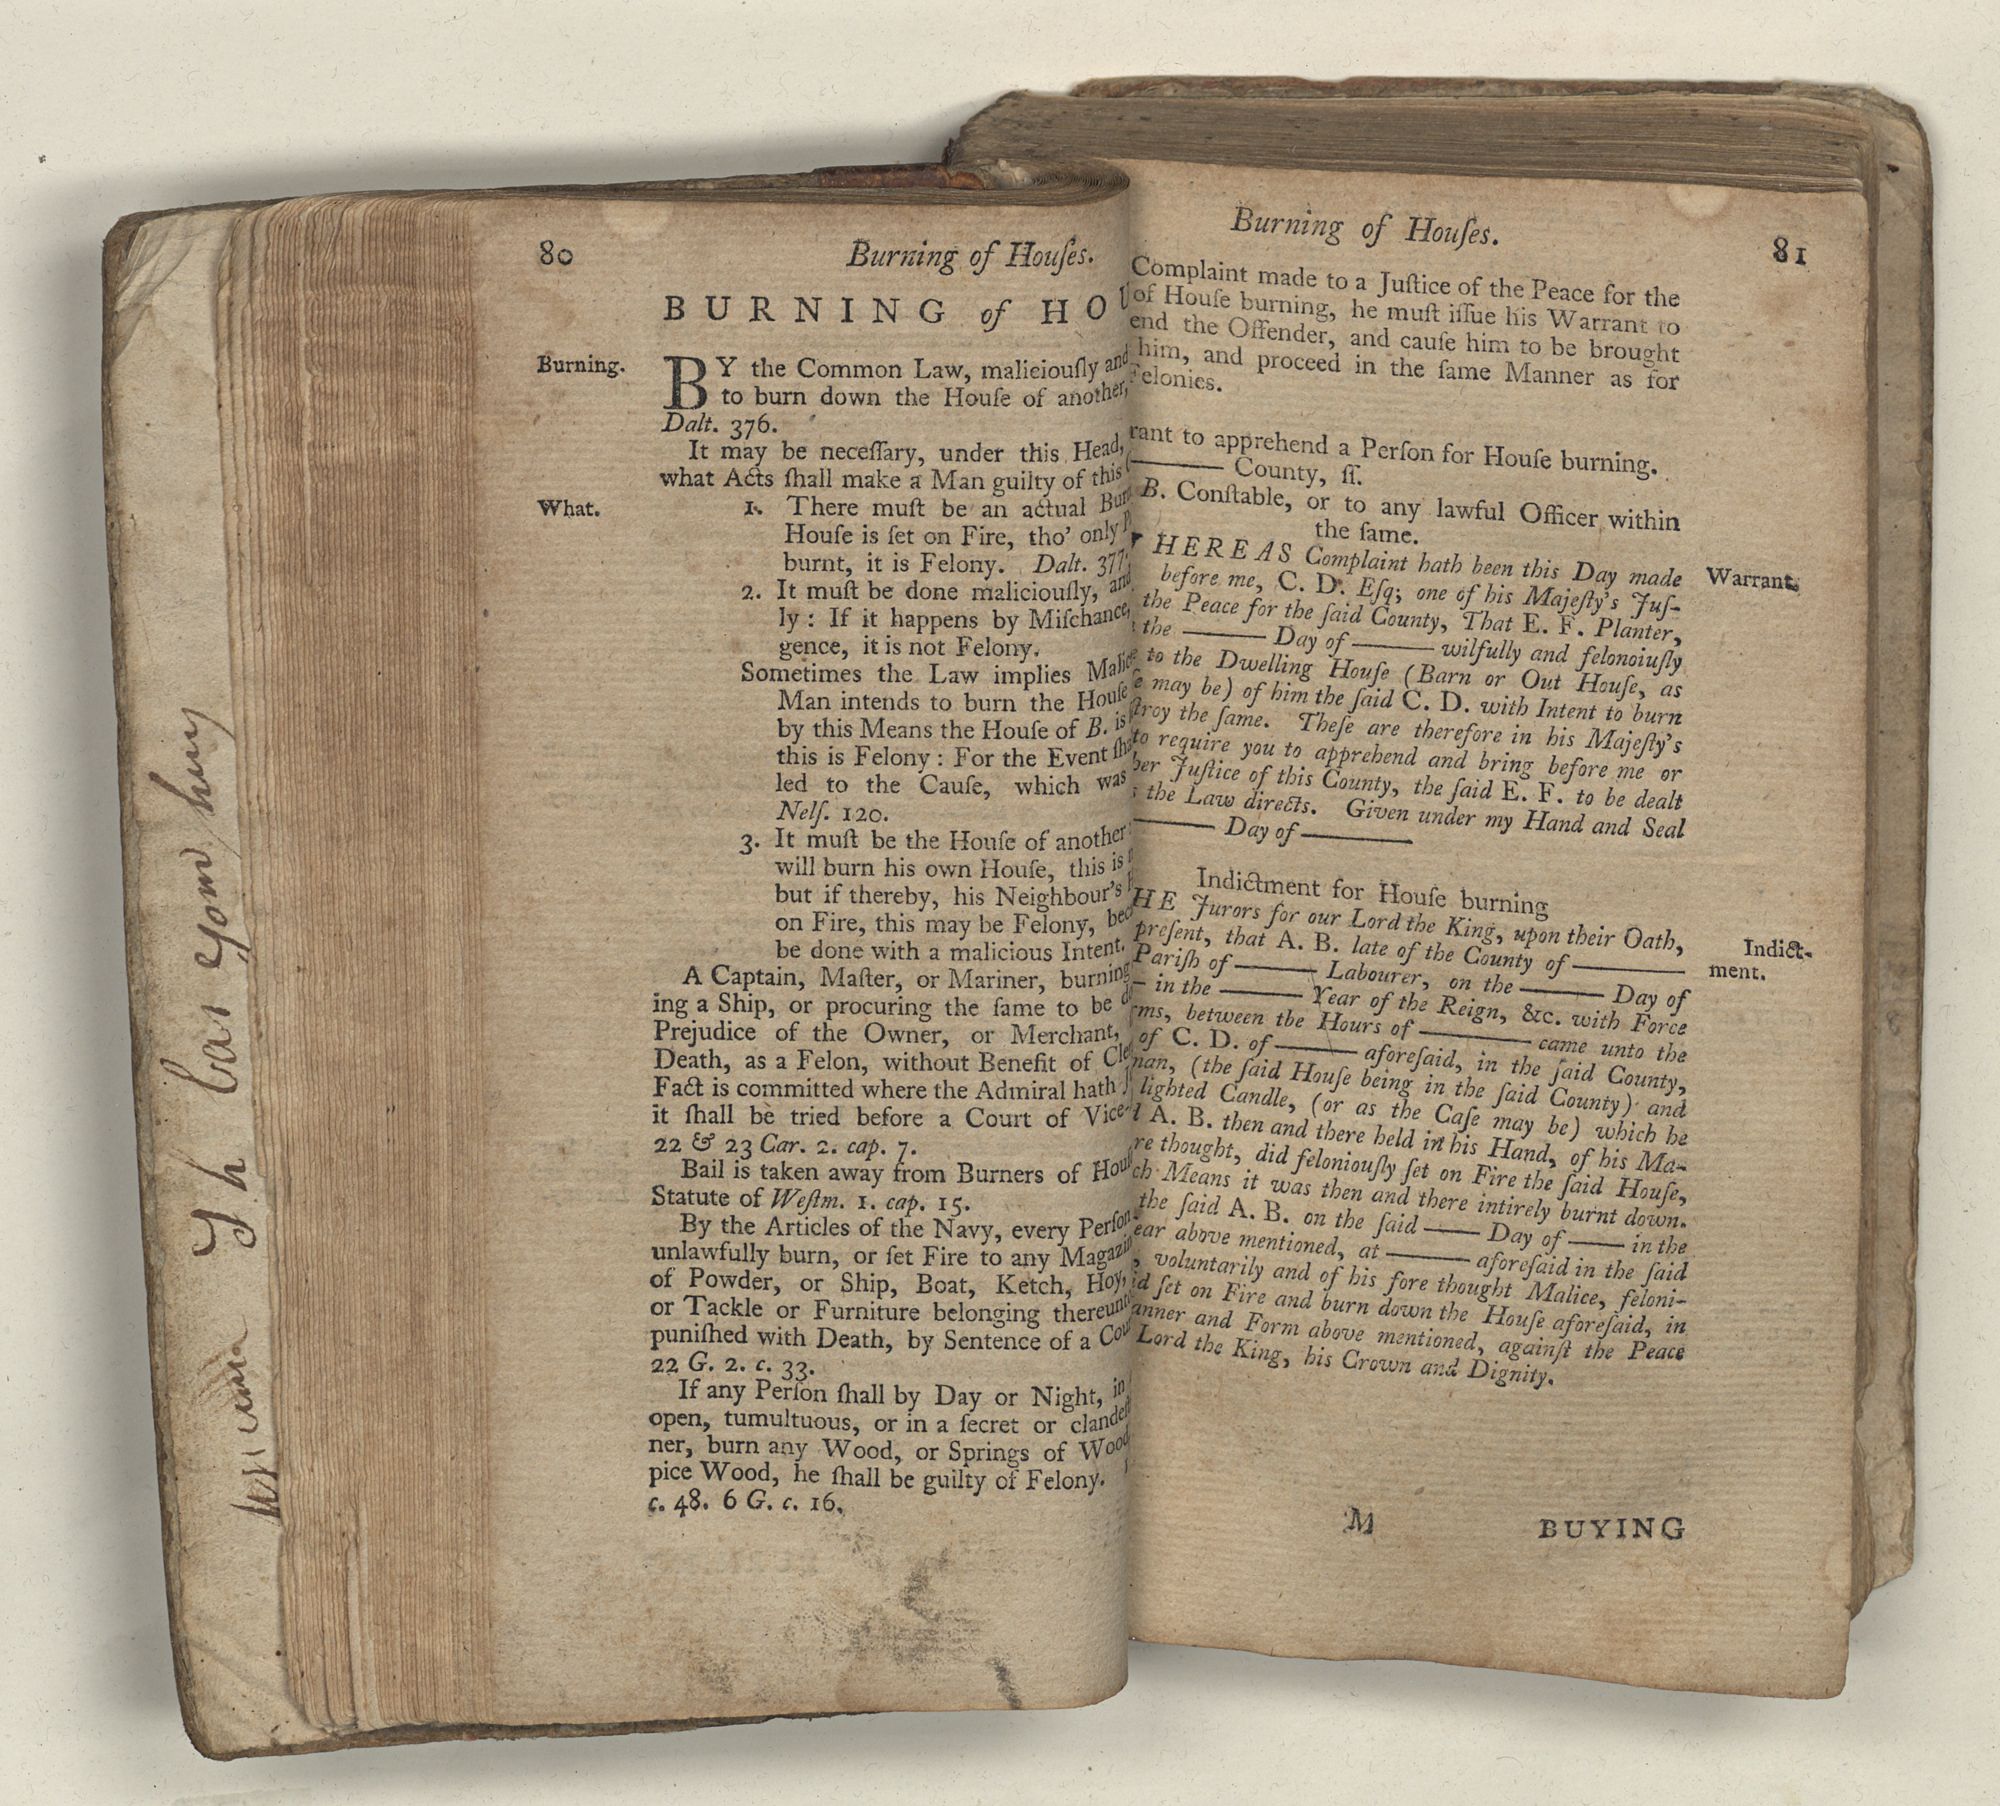 80
Burning of Houſes.
BURNING of HOU
Burning.
BY the Common Law, maliciouſly and
to burn down the Houſe of another,
Dalt. 376.
It may be neceſſary, under this Head,
what Acts ſhall make a Man guilty of this
What.
1. There muſt be an actual Burn
Houſe is ſet on Fire, tho' only
burnt, it is Felony. Dalt. 377.
2. It muſt be done maliciouſly, and
ly: If it happens by Miſchance,
gence, it is not Felony.
Sometimes the Law implies Malice
Man intends to burn the Houſe
by this Means the Houſe of B. is
this is Felony: For the Event ſha
led to the Cauſe, which was
Nelſ. 120.
3. It muſt be the Houſe of another:
will burn his own Houſe, this is
but if thereby, his Neighbour's
on Fire, this may be Felony, beca
be done with a malicious Intent.
A Captain, Maſter, or Mariner, burning
ing a Ship, or procuring the ſame to be
Prejudice of the Owner, or Merchant,
Death, as a Felon, without Benefit of Cle
Fact is committed where the Admiral hath
it ſhall be tried before a Court of Vice-
22 & 23 Car. 2. cap. 7.
Bail is taken away from Burners of Houſ
Statute of Weſtm. 1. cap. 15.
By the Articles of the Navy, every Perſon
unlawfully burn, or ſet Fire to any Magazin
of Powder, or Ship, Boat, Ketch, Hoy,
or Tackle or Furniture belonging thereunto
puniſhed with Death, by Sentence of a Cou
22 G. 2. c. 33.
If any Perſon ſhall by Day or Night, in
open, tumultuous, or in a ſecret or clandeſt
ner, burn any Wood, or Springs of Wood
pice Wood, he ſhall be guilty of Felony.
c. 48. 6 G. c. 16.
Burning of Houſes.
81
Complaint made to a Juſtice of the Peace for the
of Houſe burning, he muſt iſſue his Warrant to
end the Offender, and cauſe him to be brought
him, and proceed in the ſame Manner as for
Felonies.
rant to apprehend a Perſon for Houſe burning.
——— County, ſſ.
B. Conſtable, or to any lawful Officer within
the ſame.
HEREAS Complaint hath been this Day made
Warrant.
before me, C. D. Eſq; one of his Majeſty's Juſ-
the Peace for the ſaid County, That E. F. Planter,
the ——— Day of ——— wilfully and felonoiuſly
to the Dwelling Houſe (Barn or Out Houſe, as
e may be) of him the ſaid C. D. with Intent to burn
ſtroy the ſame. Theſe are therefore in his Majeſty's
to require you to apprehend and bring before me or
her Juſtice of this County, the ſaid E. F. to be dealt
the Law directs. Given under my Hand and Seal
——— Day of ———
Indictment for Houſe burning
HE Jurors for our Lord the King, upon their Oath,
Indict-
ment.
preſent, that A. B. late of the County of ———
Pariſh of ——— Labourer, on the ——— Day of
— in the ——— Year of the Reign, &c. with Force
rms, between the Hours of ——— came unto the
of C. D. of ——— aforeſaid, in the ſaid County,
man, (the ſaid Houſe being in the ſaid County) and
lighted Candle, (or as the Caſe may be) which he
d A. B. then and there held in his Hand, of his Ma-
re thought, did feloniouſly ſet on Fire the ſaid Houſe,
ch Means it was then and there intirely burnt down.
the ſaid A. B. on the ſaid —— Day of —— in the
ear above mentioned, at ——— aforeſaid in the ſaid
, voluntarily and of his fore thought Malice, feloni-
id ſet on Fire and burn down the Houſe aforeſaid, in
anner and Form above mentioned, againſt the Peace
Lord the King, his Crown and Dignity.
M
BUYING